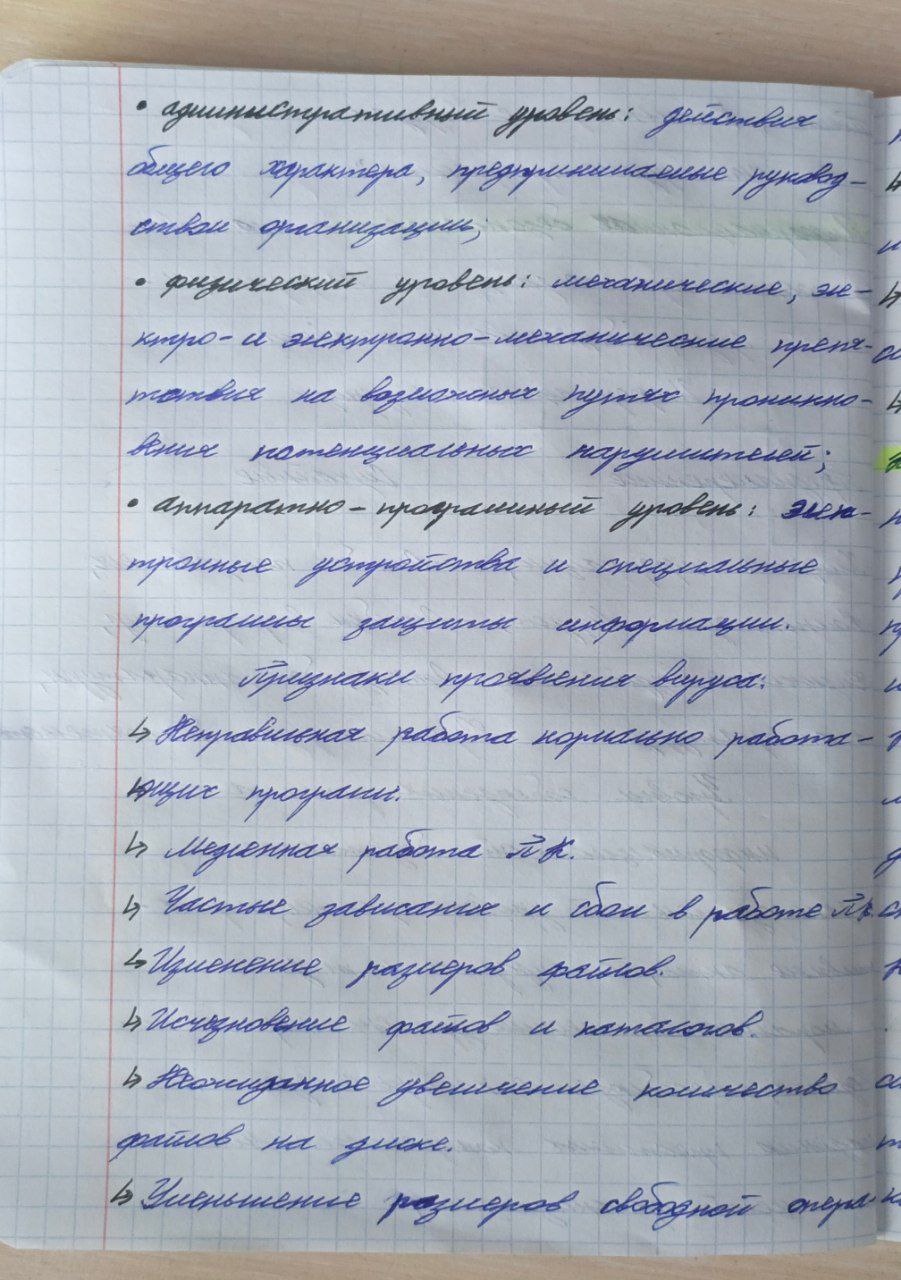 • административный уровень: действия
общего характера, предпринимаемые руковод-
ством организации;
• физический уровень: механические, эле-
ктро- и электронно-механические препя-
тствия на возможных путях проникно-
вения потенциальных нарушителей;
• аппаратно-программный уровень: элек-
тронные устройства и специальные
программы защиты информации.
Признаки проявления вируса:
↳ Неправильная работа нормально работа-
ющих программ.
↳ Медленная работа ПК.
↳ Частые зависания и сбои в работе ПК
↳ Изменение размеров файлов.
↳ Исчезновение файлов и каталогов.
↳ Неожиданное увеличение количество
файлов на диске.
↳ Уменьшение размеров свободной опера-